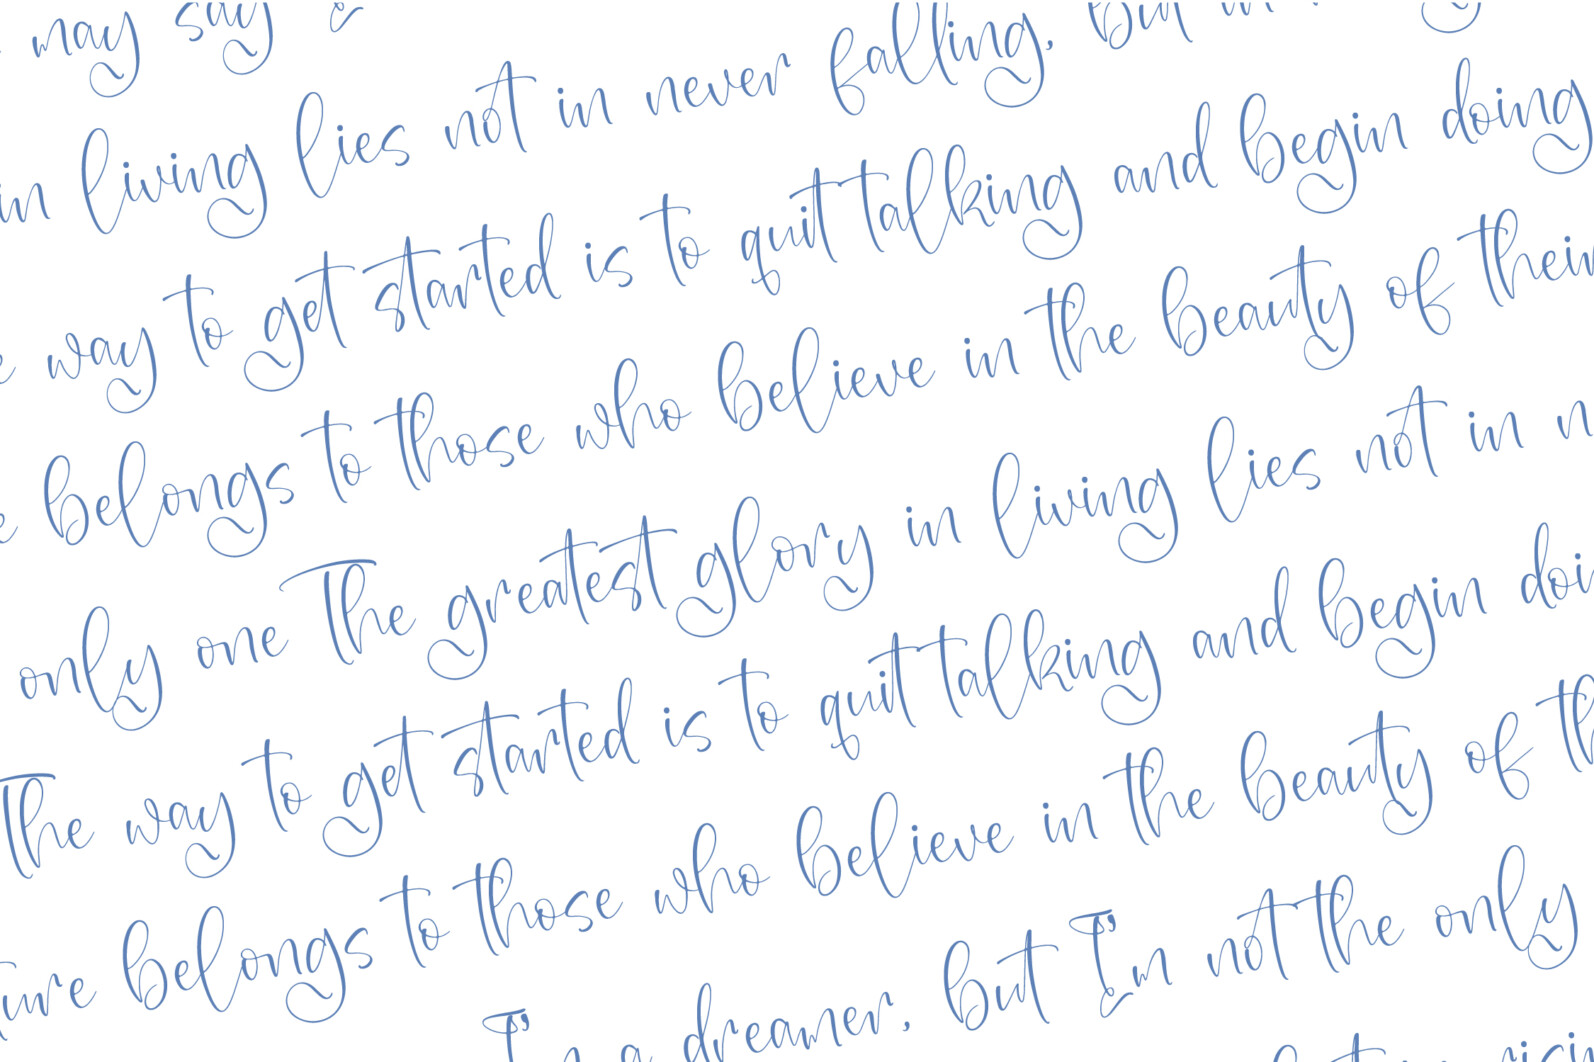 may say
in living lies not in never falling, but in
way to get started is to quit talking and begin doing
belongs to those who believe in the beauty of their
only one The greatest glory in living lies not in n
The way to get started is to quit talking and begin doi
ure belongs to those who believe in the beauty of th
I'm a dreamer, but I'm not the only